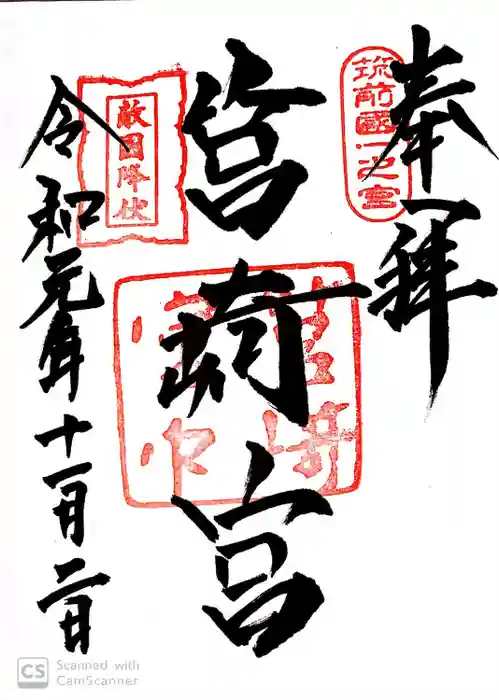 奉拝
筑前國一之宮
筥崎宮
敵国降伏
令和元年十一月二日
CS Scanned with
CamScanner